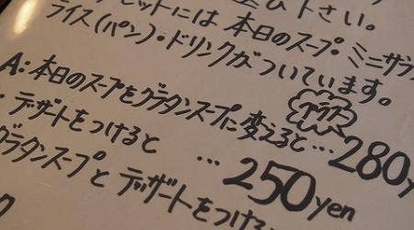 び下さい。
セットには 本日のスープ ミニサラ
ライス(パン)・ドリンクがついています。
プラス
A:本日のスープをグラタンスープに変えると…280y
・デザートをつけると …250yen
グラタンスープと デザートをつける